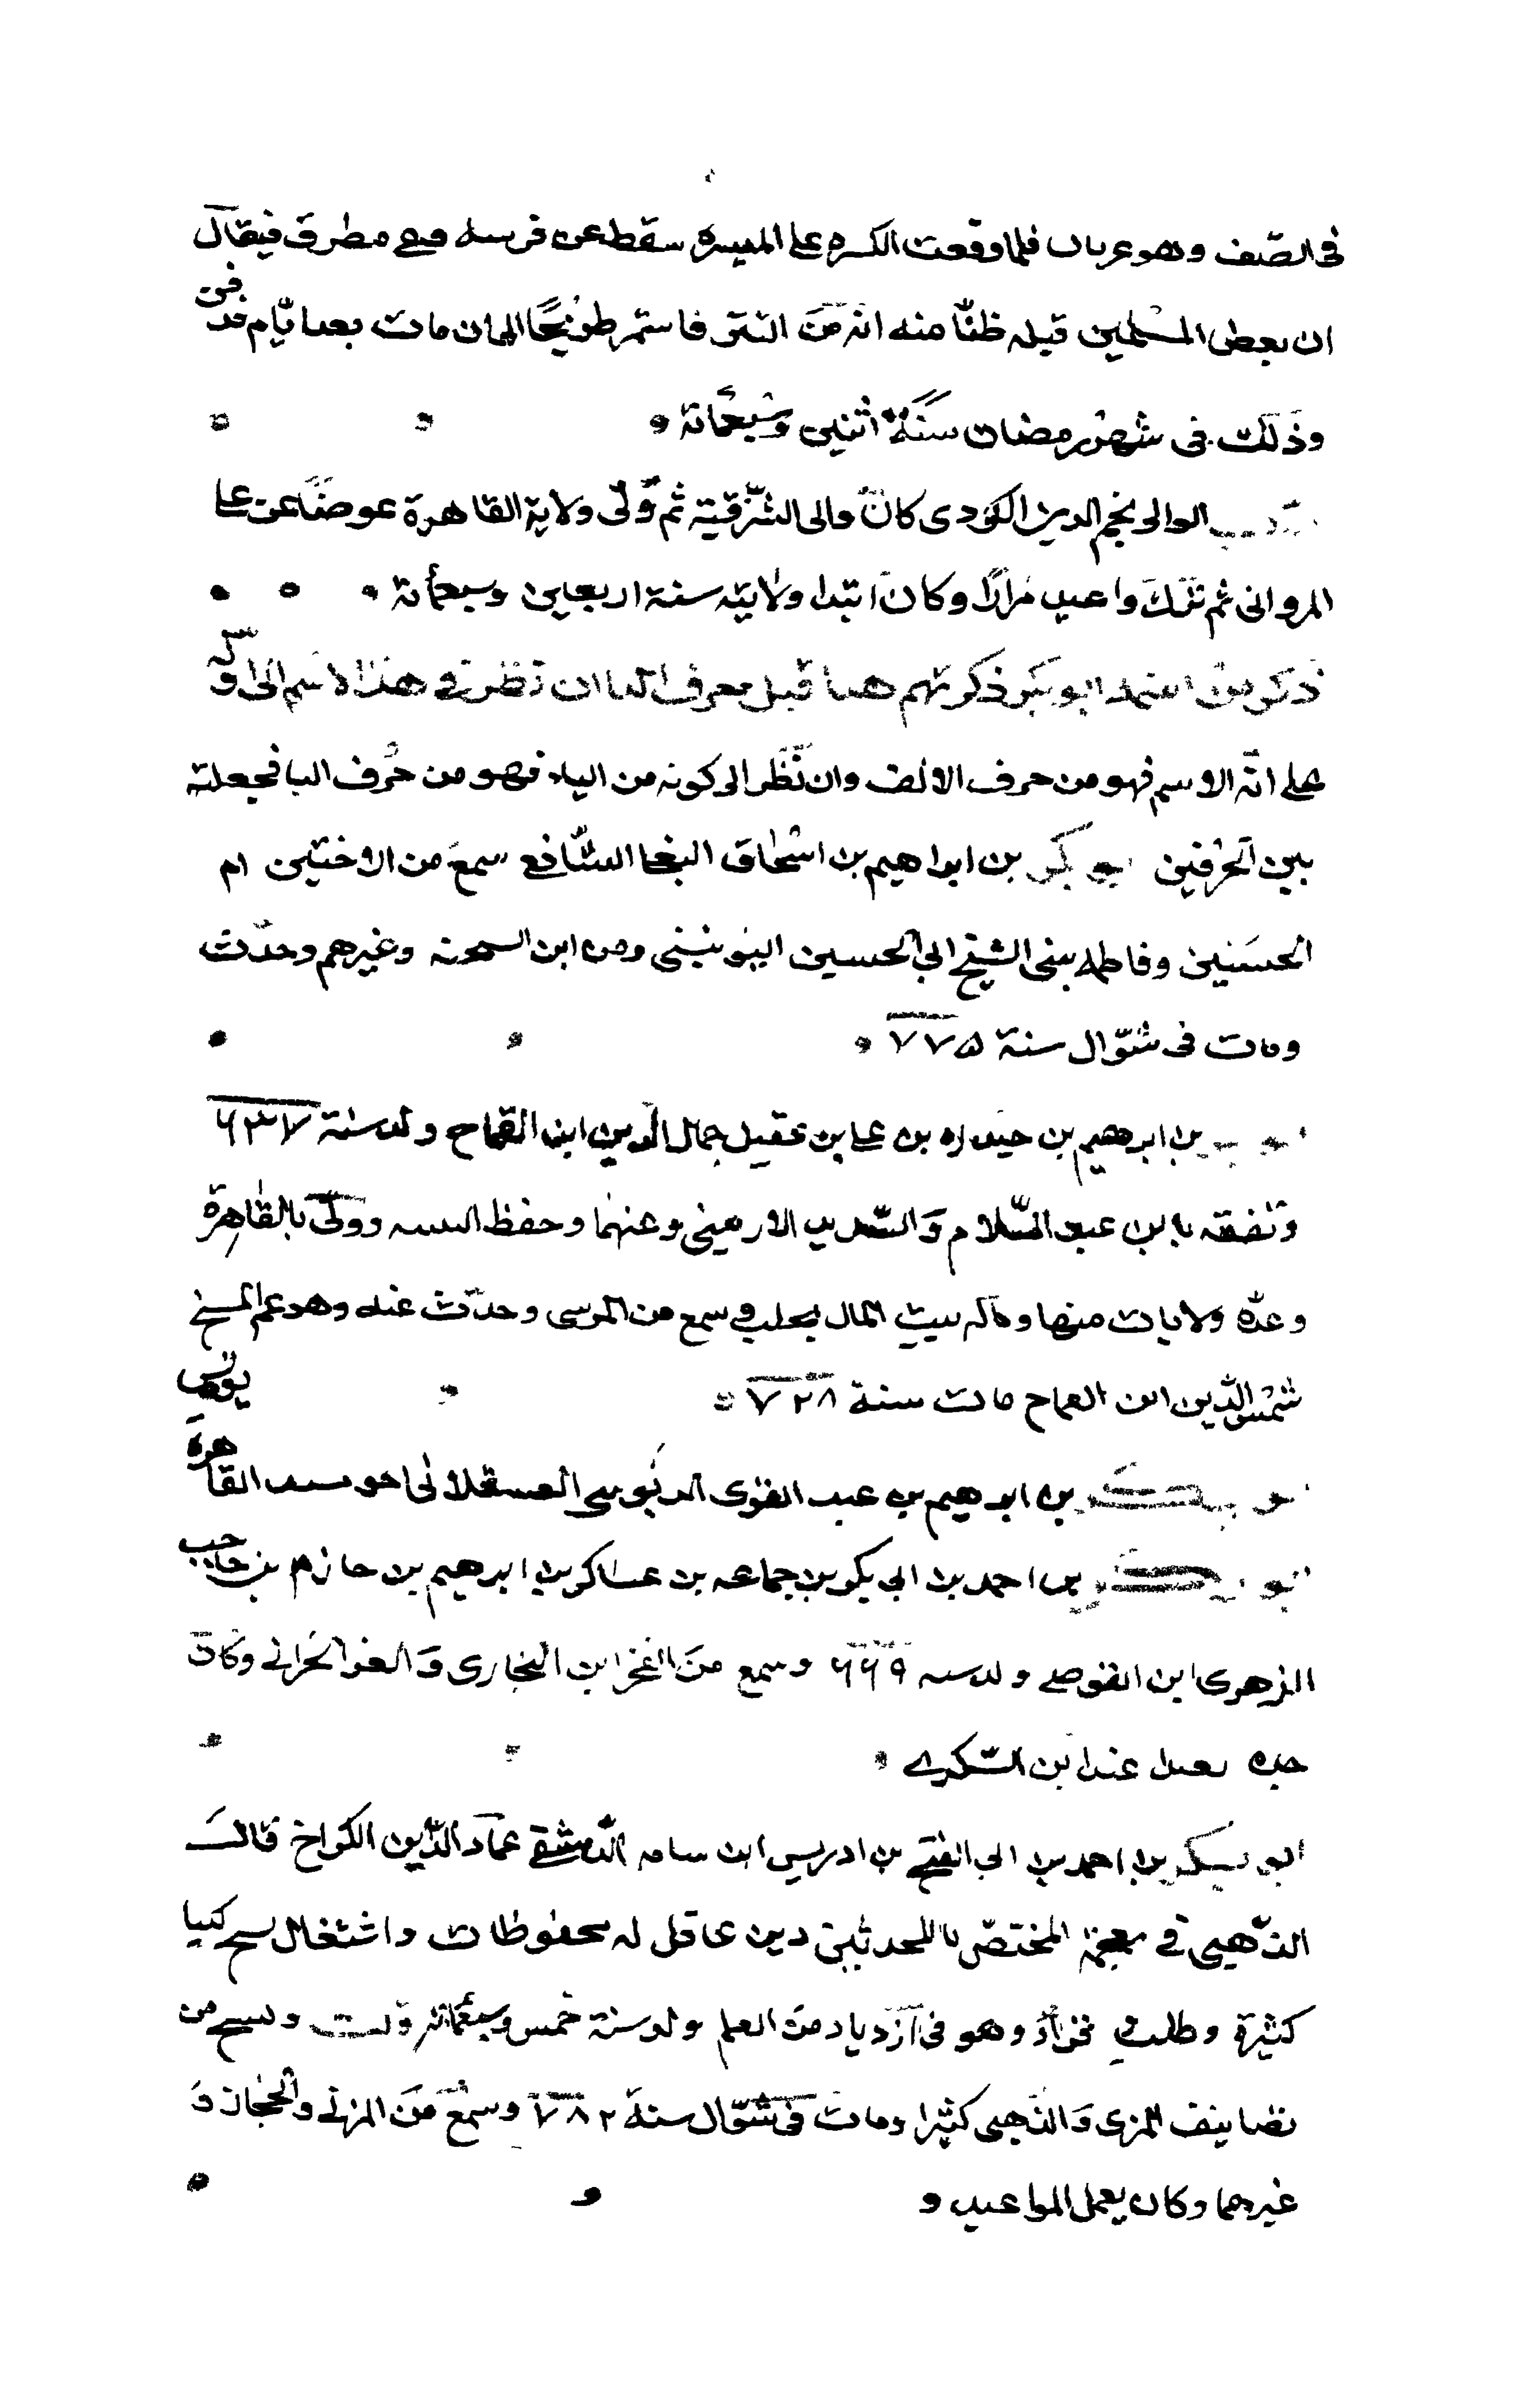 فى الصّف وهو عريان فلما وقعت الكسره على الميسرة سقط عن فرسه مطرق فيقال
ان بعض المسلمين قتله ظنّا منه انه من التتر فاستمر طريحًا الى ان مات بعد ايّام
وذلك فى شهر رمضان سنة اثنين وسبعمائة
الوالى نجم الدين الكردى كان والى الشرقية ثم ولى ولاية القاهرة عوضًا عن على
المروانى ثم ترك واعيد مرارًا وكان ابتدا ولايته سنة اربعين وسبعمائة
ذكر من اسمه ابو بكر ذكرتهم هنا قبل حرف التا ان نظر فى هذا الاسم الى اوله
على انه الاسم فهو من حرف الالف وان نظر الى كونه من الباء فهو من حرف البا فجعلته
بين الحرفين ابو بكر بن ابراهيم بن اسحاق الشافع سمع من الاختين ام
الحسنين وفاطمه بنتى الشيخ ابي الحسين اليونينى ومن ابن وغيرهم وحدّث
ومات فى شوّال سنة ٧٧٥
بن ابرهيم بن حيدره بن على بن عقيل جمال الدين ابن القماح ولد سنة ٦٣٧
وتفقه بابن عبد السّلام والسّديد الارمنتى وعنهما وحفظ التنبيه وولى بالقاهرة
وعدّه ولايات منها وكاله بيت المال بحلب وسمع من المرسى وحدّث عنه وهو عم الشيخ
شمس الدين ابن القماح مات سنة ٧٢٨
بن ابرهيم بن عبد القوى الدبوسى العسقلانى اخو يونس القاهره
ابو بكر بن احمد بن ابي بكر بن جماعه بن عساكر بن ابرهيم بن حازم بن حاجب
الزهرى ابن القوصى ولد سنه ٦٦٩ وسمع من الفخر ابن البخارى والعز الحرانى وكان
جده يعدل عند ابن السّكرى
ابو بكر بن احمد بن ابي الفتح بن ادريس ابن سامه الدّمشقى عماد الدّين قال
الذّهبى فى معجمه المختصّ بالمحدثين دين عاقل له محفوظات واشتغال نسخ كتبا
كثيرة وطلب وهو فى ازدياد من العلم ولد سنة خمس وسبعمائة قلت ونسخ من
تصانيف المزى والذهبى كثيرا ومات فى شوّال سنة ٧٨٢ وسمع من المزى والحجار و
غيرهما وكان يعمل المواعيد